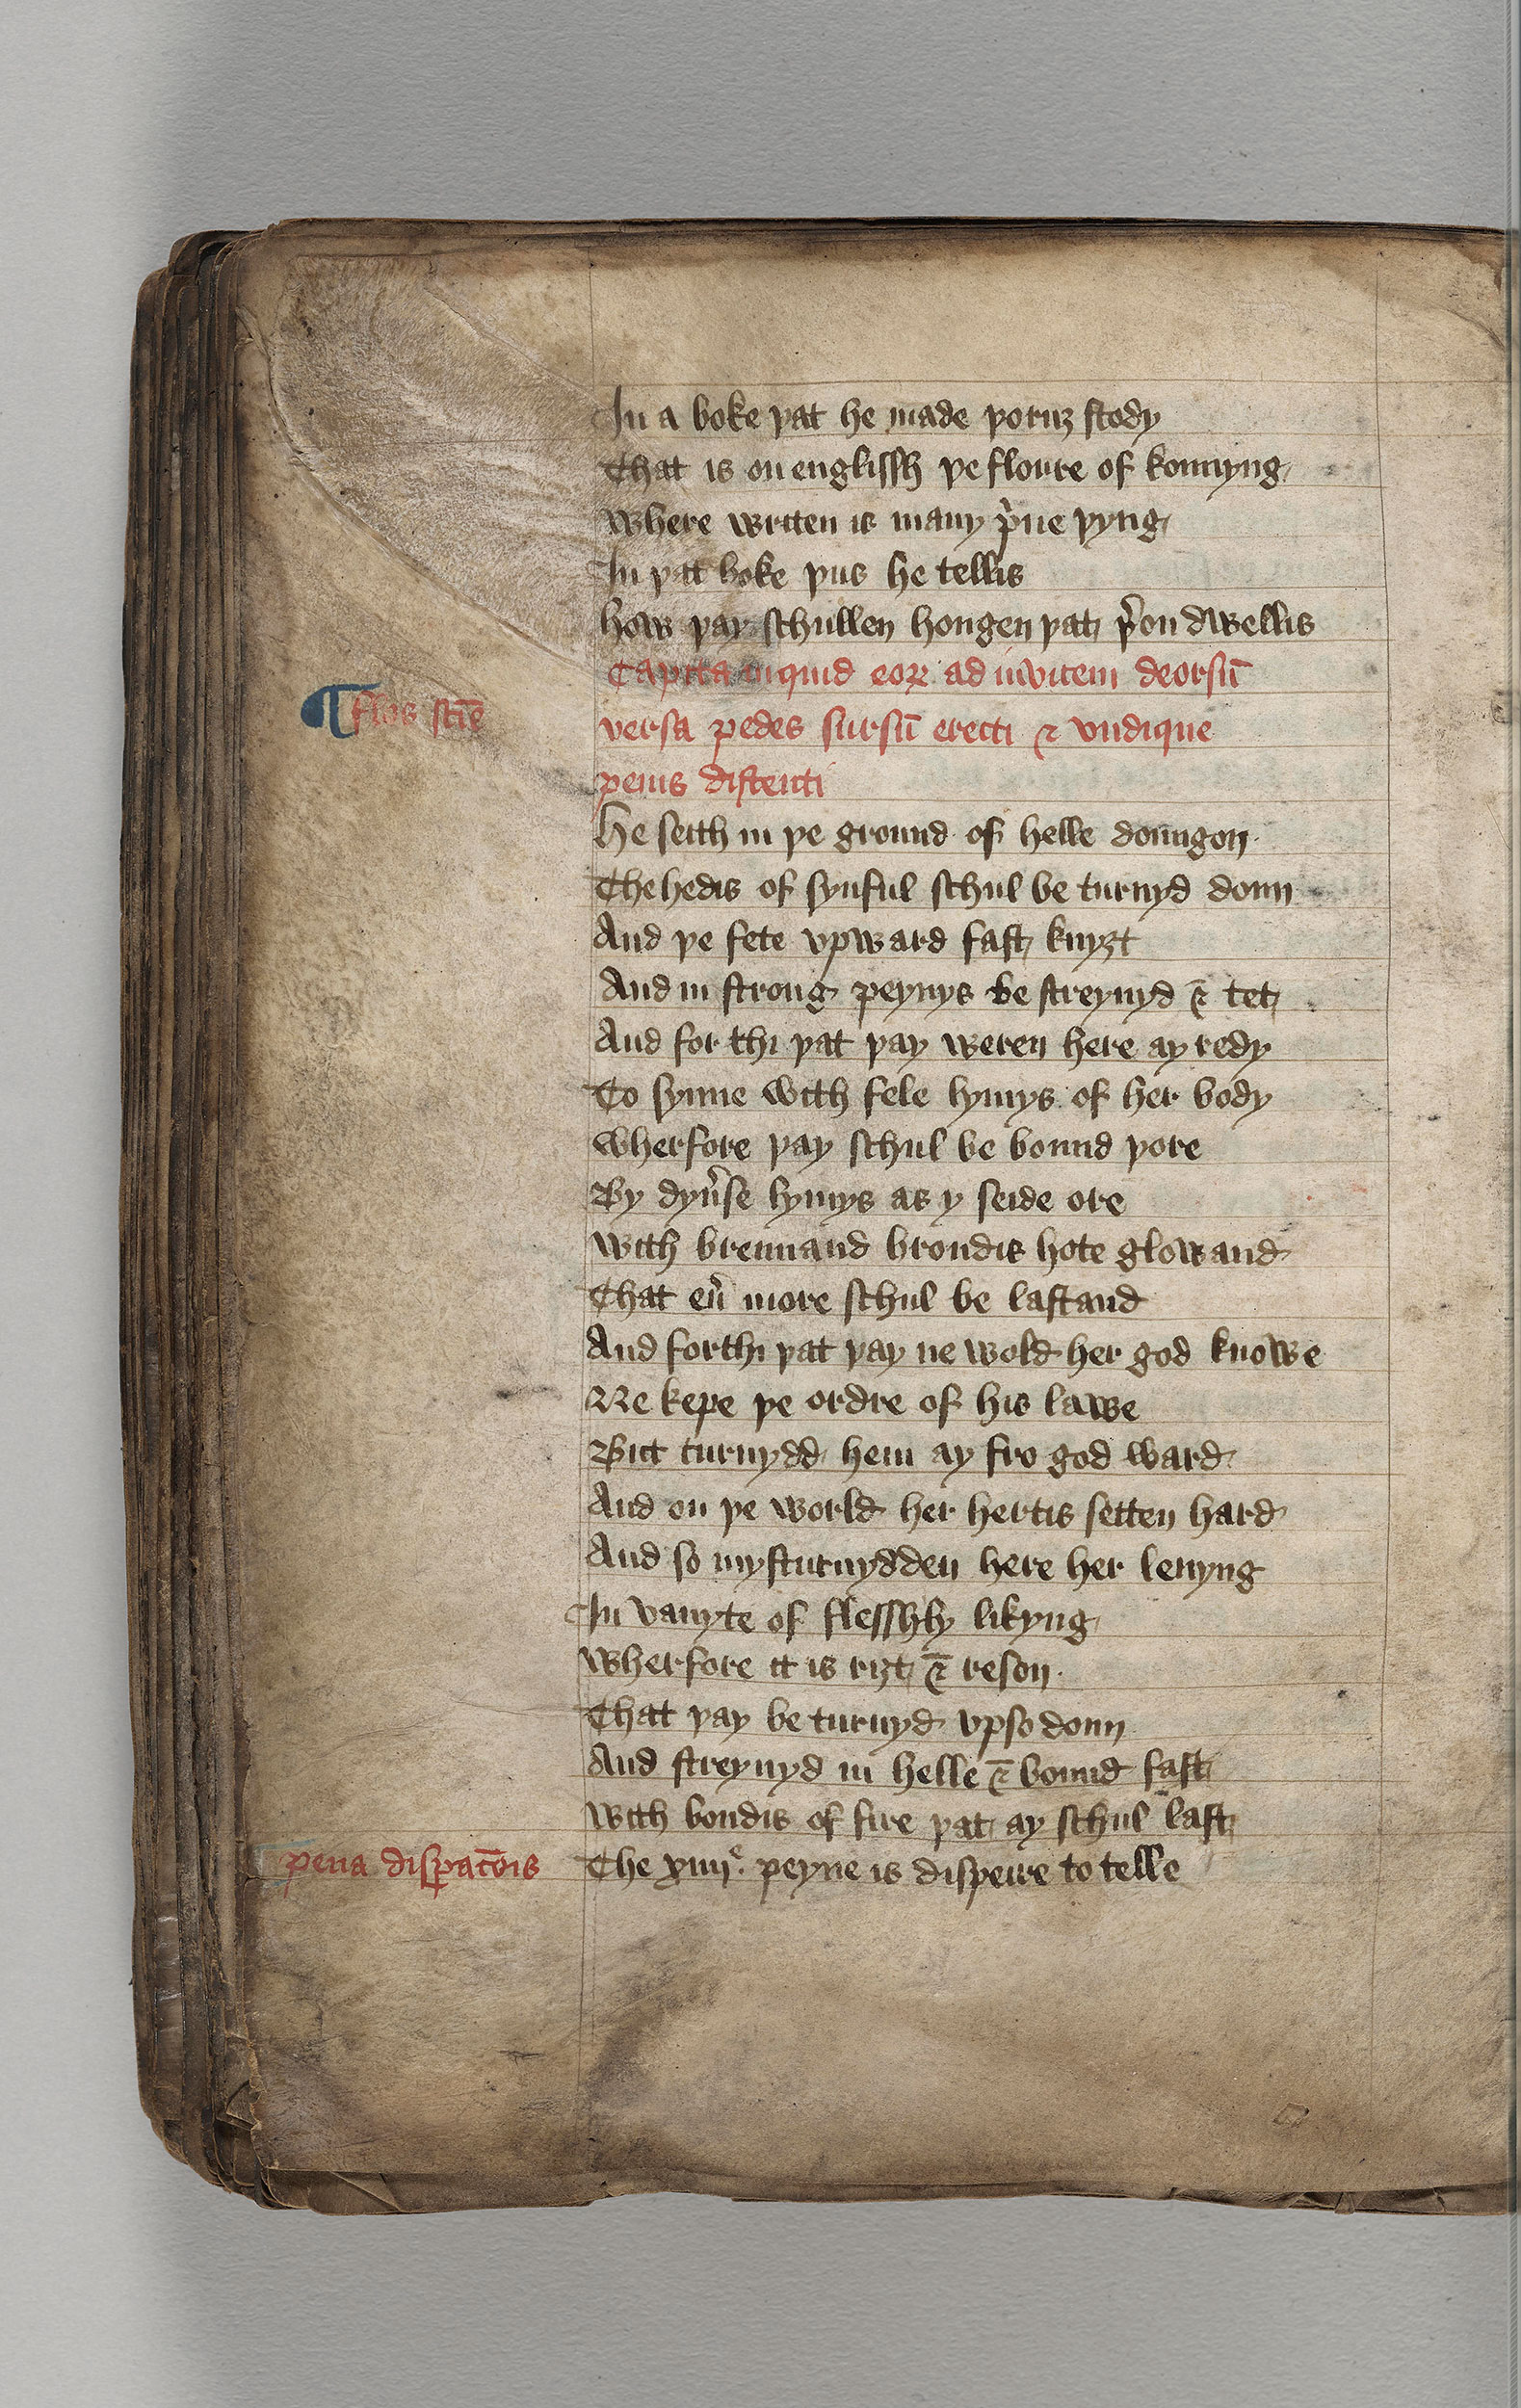 In a boke þat he made þoruȝ stody
That is on englissh þe floure of konnyng
Where writen is many p̉ue þyng
In þat boke þus he tellis
How þay schullen hongen þat þ̉on dwellis
Capita inquid eoꝝ ad invicem deorsū
¶ flos scīe
versa pedes sursū erecti ⁊ vndique
penis distenti
He seith in þe ground of helle doungon
The hedis of synful schul be turnyd doun
And þe fete vpward fast knyȝt
And in strong peynys be streynyd ⁊ tet
And for thi þat þay weren here ay redy
To synne with fele lymys of her body
Wherfore þay schul be bound þore
By dyủse lymys as y seide ore
With brennand brondis hote glowand
That eủ more schul be lastand
And forthi þat þay ne wold her god knowe
Ne kepe þe ordre of his lawe
But turnydd hem ay fro god ward
And on þe world her hertis setten hard
And so mysturnydden here her leuyng
In vanyte of flesshly likyng
Wherfore it is riȝt ⁊ reson
That þay be turnyd vpso doun
And streynyd in helle ⁊ bound fast
With bondis of fire þat ay schul last
pena disꝑacōis
The xiiijᵉ. peyne is dispeire to telle